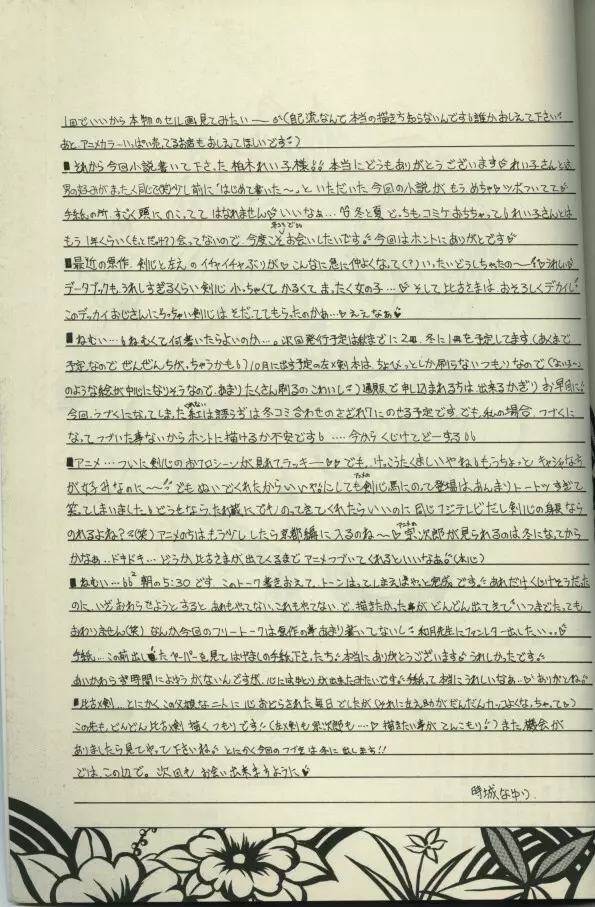 1回でいいから本物のセル画見てみたい──(自己流なんで本当の描き方知らないんです 誰かおしえて下さい
あと、アニメカラーいっぱい売ってるお店もおしえてほしいです)
■それから今回小説書いて下さった柏木れい子様 本当にどうもありがとうございます れい子さんとは
男の好みがまったく同じで(笑)少し前に「はじめて書いた〜」といただいた今回の小説がもうめちゃツボついてて
手紙の所、すごく頭にのこってて はなれません いいなぁ… 冬と夏どっちもコミケおちちゃって れい子さんとは
もう1年くらい(もっとだっけ?)会ってないので、今度こそお会いしたいです 今回はホントにありがとです
■最近の原作、剣心と左之のイチャイチャぶりが こんなに急に仲よくなって(?)いったいどうしちゃったの〜 うれしい
データブックも、うれしすぎるくらい剣心 小っちゃくて かるくて まったく女の子… そして比古さまは おそろしくデカイし
このデッカイおじさんにちっちゃい剣心は そだててもらったのかぁ… ええなぁ
■ねむい… ねむくて何書いたらよいのか…。次回発行予定は秋までに2冊、冬に1冊を予定してます(あくまで
予定なので ぜんぜんちがっちゃうかも)10月に出す予定の左×剣本は、ちょびっとしか刷らないつもりなので(ないよ〜)
のような絵が中心になりそうなので、あまりたくさん刷るのこわいし)通販で申し込まれる方は出来るかぎりお早目に
今回、つづくになってしまった紅は誘うぎは冬コミ合わせのさざれ7にのせる予定です でも、私の場合、つづくに
なってつづいた事ないから ホントに描けるか不安です …今からくじけてどーする
■アニメ…ついに剣心のおフロシーンが見れてラッキー でも、けっこうたくましいやね もうちょっとキャシャな方
が女子みなのに〜 でも ぬいでくれたからいいや にしてもアニメの剣心馬にのって登場は、あんまりトートツすぎて
笑ってしまいました どうもなら たれ蔵にでものってきてくれたらいいのに 同じフジテレビだし剣心の身長なら
のれるよね?(笑)アニメのちはもう少ししたら京都編に入るのね〜 アニメの宗次郎が見られるのは冬になってから
かなぁ…ドキドキ… どうか、比古さまが出てくるまで アニメつづいてくれるといいなぁ(本心)
■ねむい… 朝の5:30です、このトーク書きおえて、トーンはってしまえばやっと完成です あれだけくじけそうだった
のに、いざおわらせようとすると あれもやってない、これもやってないで、描きたかった事がどんどん出てきて いつまでたっても
おわりません(笑)なんか今回のフリートークは原作の事あまり書いてないし 和月先生にファンレター出したい
手紙…この前出したペーパーを見てはげましの手紙下さった方 本当にありがとうございます うれしかったです
あいかわらず時間によゆうがないんですが、心にはゆとりが出来たみたいです 手紙って本当にうれしいなぁ ありがとね
■比古×剣…とにかくこの父娘な二人に心おどらされた毎日でしたが(それに左之助がだんだんカッコよくなっちゃってる)
この先も、どんどん比古×剣 描くつもりです(左×剣も宗次郎も… 描きたい事がてんこもり)また機会が
ありましたら見てやって下さいね とにかく今回のつづきは冬に出します!!
では、この辺で。次回も お会い出来ますように
時城なゆり